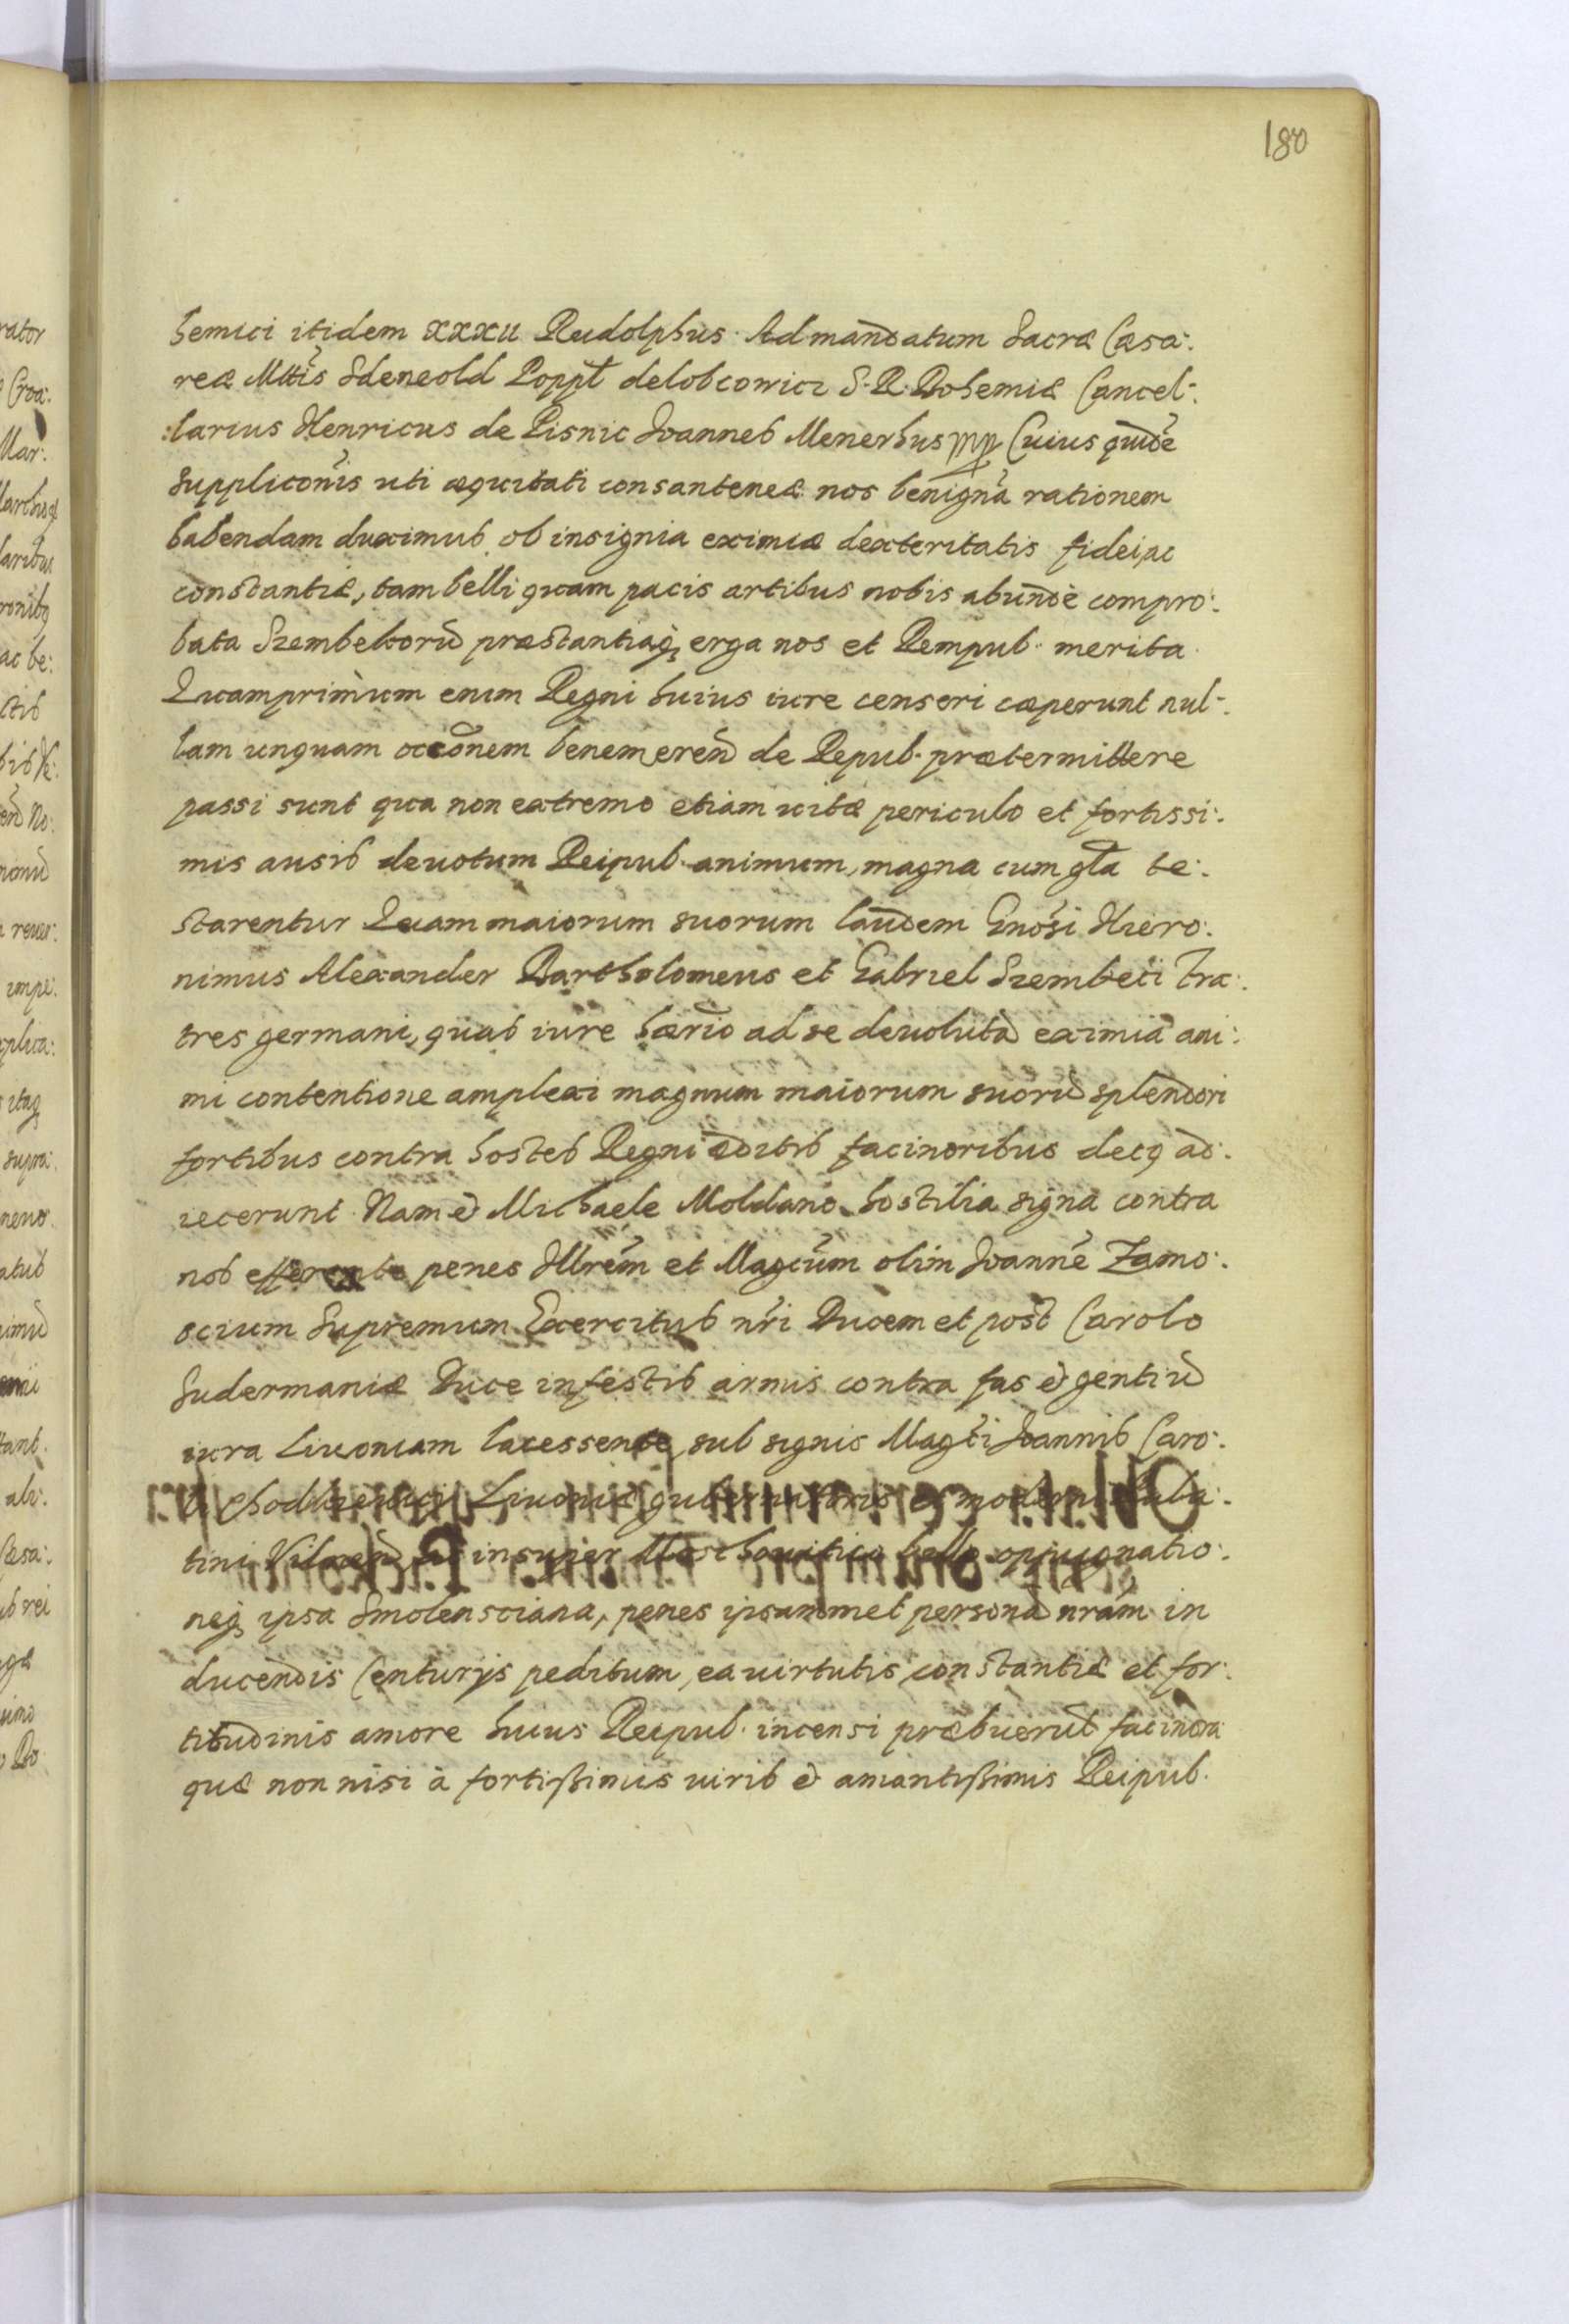 180
hemici itidem xxxii Rudolphus. Ad mandatum Sacræ Cæsa:
reæ Mttis Sdeneold Poppl delobcowicz S. R. Bohemiæ Cancel:
:larius Henricus de Pisnic Joannes Menerhus mpp Cuius quidē
suppliconis uti æquitati consantaneæ nos benignā rationem
habendam duximus ob insignia eximiæ dexteritatis fidei, ac
constantiæ, tam belli quam pacis artibus nobis abunde compro:
bata Szembekorū præstantiaq; erga nos et Rempub. merita.
Quamprimum enim Regni huius iure censeri cæperunt nul:
lam unquam occōnem benemerend de Repub. prætermittere
passi sunt qua non extremo etiam uitæ periculo et fortissi:
mis ausis deuotum Reipub. animum, magna cum gla te:
starentur Quam maiorum suorum laudem Gnosi Hiero:
nimus Alexander Bartholomeus et Gabriel Szembeci fra:
tres germani, quasi iure hærio ad se deuolutā eximiā ani:
mi contentione amplexi magnum maiorum suorū splendori
fortibus contra hostes Regni æditis facinoribus decq ad:
iecerunt. Nam & Michaele Moldano hostilia signa contra
nos efferente penes Illrem et Magcum olim Joannē Zamo:
scium Supremum Exercitus nri Ducem et post Carolo
Sudermaniæ Duce infestis armis contra fas & gentiū
iura Liuoniam lacessente, sub signis Magci Joannis Caro:
li Chodkieuicij Liuoniæ gubernatoris & moderni Pala:
tini Vilnen, ac insuper Moschouitico bello oppugnatio:
neq; ipsa Smolensciana, penes ipsammet personā nram in
ducendis Centurijs peditum, ea uirtutis, constantiæ et for:
titudinis amore huius Reipub. incensi præbuerūt facinora
quæ non nisi à fortißimis uiris & amantißimis Reipub.